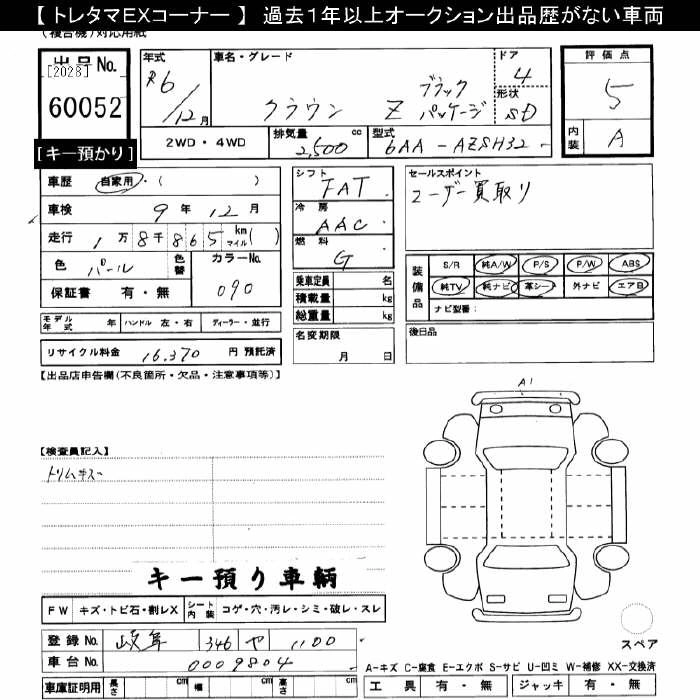 【トレタマEXコーナー】 過去1年以上オークション出品歴がない車両
(複合機)対応用紙
出品No. [2028] 60052
[キー預かり]
年式 R6/12月
車名・グレード クラウン Z ブラックパッケージ
ドア 4
形状 SD
評価点 5
内装 A
2WD・4WD
排気量 2,500 cc
型式 6AA-AZSH32-
車歴 自家用・( )
車検 9年12月
走行 1万8千865 km マイル( )
色 パール 色替
カラーNo. 090
保証書 有・無
シフト FAT
冷房 AAC
燃料 G
乗車定員 名
積載量 kg
総重量 kg
名変期限 月 日
セールスポイント
ユーザー買取り
装備品 S/R 純A/W P/S P/W ABS
純TV 純ナビ 革シート 外ナビ エアB
ナビ型番:
後日品
モデル年式 年 ハンドル 左・右 ディーラー・並行
リサイクル料金 16,370 円 預託済
【出品店申告欄(不良箇所・欠品・注意事項等)】
A1
【検査員記入】
トリムキズ〜
キー預り車輌
FW キズ・トビ石・割レX シート内装 コゲ・穴・汚レ・シミ・破レ・スレ
登録No. 岐阜 346 ヤ 1100
車台No. 0009804
スペア
A-キズ C-腐食 E-エクボ S-サビ U-凹ミ W-補修 XX-交換済
車庫証明用 長さ cm 幅 cm 高さ cm
工具 有・無 ジャッキ 有・無